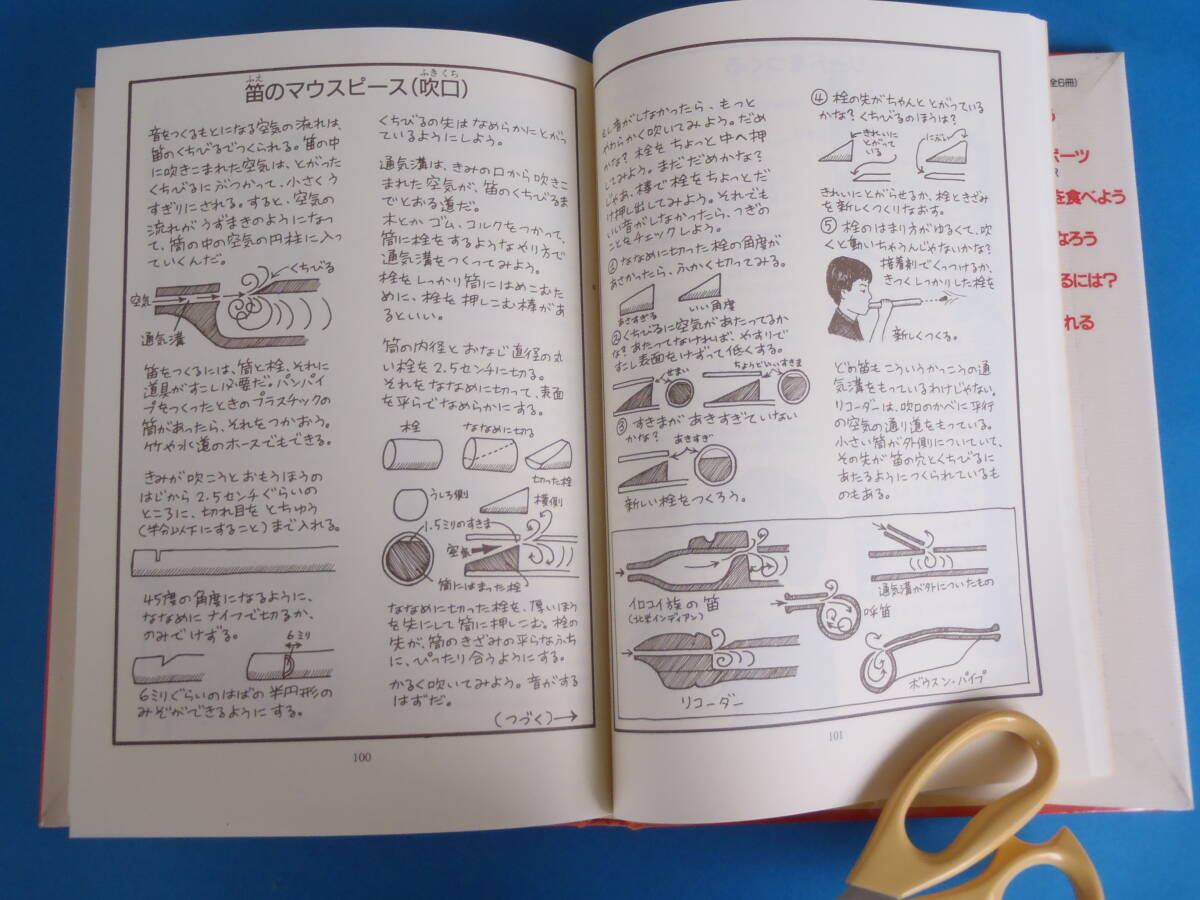 笛のマウスピース(吹口)
ふえ
ふきくち
音をつくるもとになる空気の流れは、
笛のくちびるでつくられる。笛の中
に吹きこまれた空気は、とがった
くちびるにぶつかって、小さくう
すぎりにされる。すると、空気の
流れがうずまきのようになっ
て、筒の中の空気の円柱に入っ
ていくんだ。
くちびる
空気
通気溝
笛をつくるには、筒と栓、それに
道具がすこし必要だ。パンパイ
プをつくったときのプラスチックの
筒があったら、それをつかおう。
竹や水道のホースでもできる。
きみが吹こうとおもうほうの
はじから2.5センチぐらいの
ところに、切れ目をとちゅう
(半分以下にすること)まで入れる。
45度の角度になるように、
ななめにナイフで切るか、
のみでけずる。
6ミリ
6ミリぐらいのはばの半円形の
みぞができるようにする。
くちびるの先はなめらかにとがっ
ているようにしよう。
通気溝は、きみの口から吹きこ
まれた空気が、笛のくちびるま
でとおる道だ。
木とかゴム、コルクをつかって、
筒に栓をするようなやり方で
通気溝をつくってみよう。
栓をしっかり筒にはめこむた
めに、栓を押しこむ棒があ
るといい。
筒の内径とおなじ直径の丸
い栓を2.5センチに切る。
それをななめに切って、表面
を平らでなめらかにする。
栓
ななめに切る
切った栓
うしろ側
横側
1.5ミリのすきま
空気
筒にはまった栓
ななめに切った栓を、厚いほう
を先にして筒に押しこむ。栓の
先が、筒のきざみの平らなふち
に、ぴったり合うようにする。
かるく吹いてみよう。音がする
はずだ。
(つづく)→
100
もし音がしなかったら、もっと
やわらかく吹いてみよう。だめ
かな?栓をちょっと中へ押
してみよう。まだだめかな?
じゃあ、棒で栓をちょっとだ
け押し出してみよう。それでも
いい音がしなかったら、つぎの
ことをチェックしよう。
①ななめに切った栓の角度が
あさかったら、ふかく切ってみる。
あさすぎる
いい角度
②くちびるに空気があたってるか
な?あたってなければ、やすりで
すこし表面をけずって低くする。
せまい
ちょうどいいすきま
③すきまがあきすぎていない
かな?
あきすぎ
新しい栓をつくろう。
④栓の先がちゃんととがっている
かな?くちびるのほうは?
きれいに
とがって
いる
にぶい
きれいにとがらせるか、栓ときざみ
を新しくつくりなおす。
⑤栓のはまり方がゆるくて、吹
くと動いちゃうんじゃないかな?
接着剤でくっつけるか、
きつくしっかりした栓を
新しくつくる。
どの笛もこういうかっこうの通
気溝をもっているわけじゃない。
リコーダーは、吹口のかべに平行
の空気の通り道をもっている。
小さい筒が外側についていて、
その先が笛の穴とくちびるに
あたるようにつくられているも
のもある。
イロコイ族の笛
(北米インディアン)
通気溝が外についたもの
呼笛
リコーダー
ボウスン・パイプ
101
全6冊)
ポーツ
を食べよう
なろう
るには?
れる